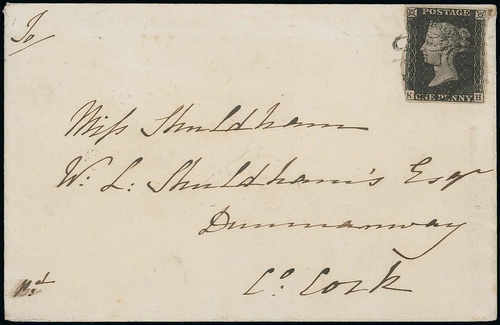 To
POSTAGE
K H
ONE PENNY
Miss Shuldham
W. L: Shuldham's Esqr
Dunmanway
Co. Cork